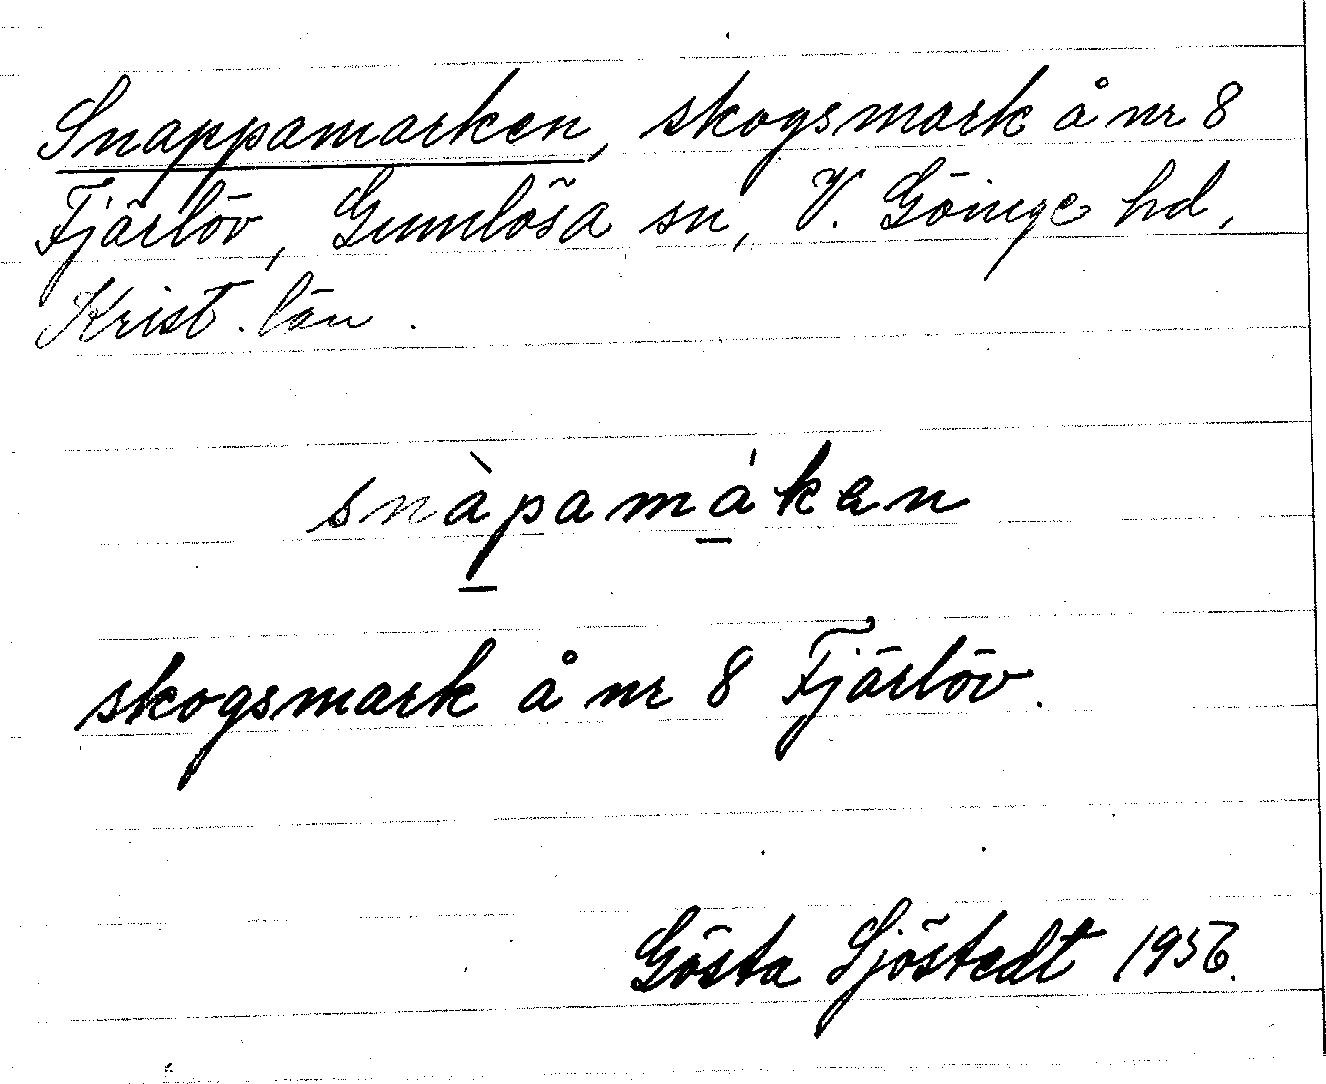 Snappamarken, skogsmark å nr 8
Fjärlöv, Gumlösa sn, V. Göinge hd,
Krist. län.
snàpamákan
skogsmark å nr 8 Fjärlöv.
Gösta Sjöstedt 1956.